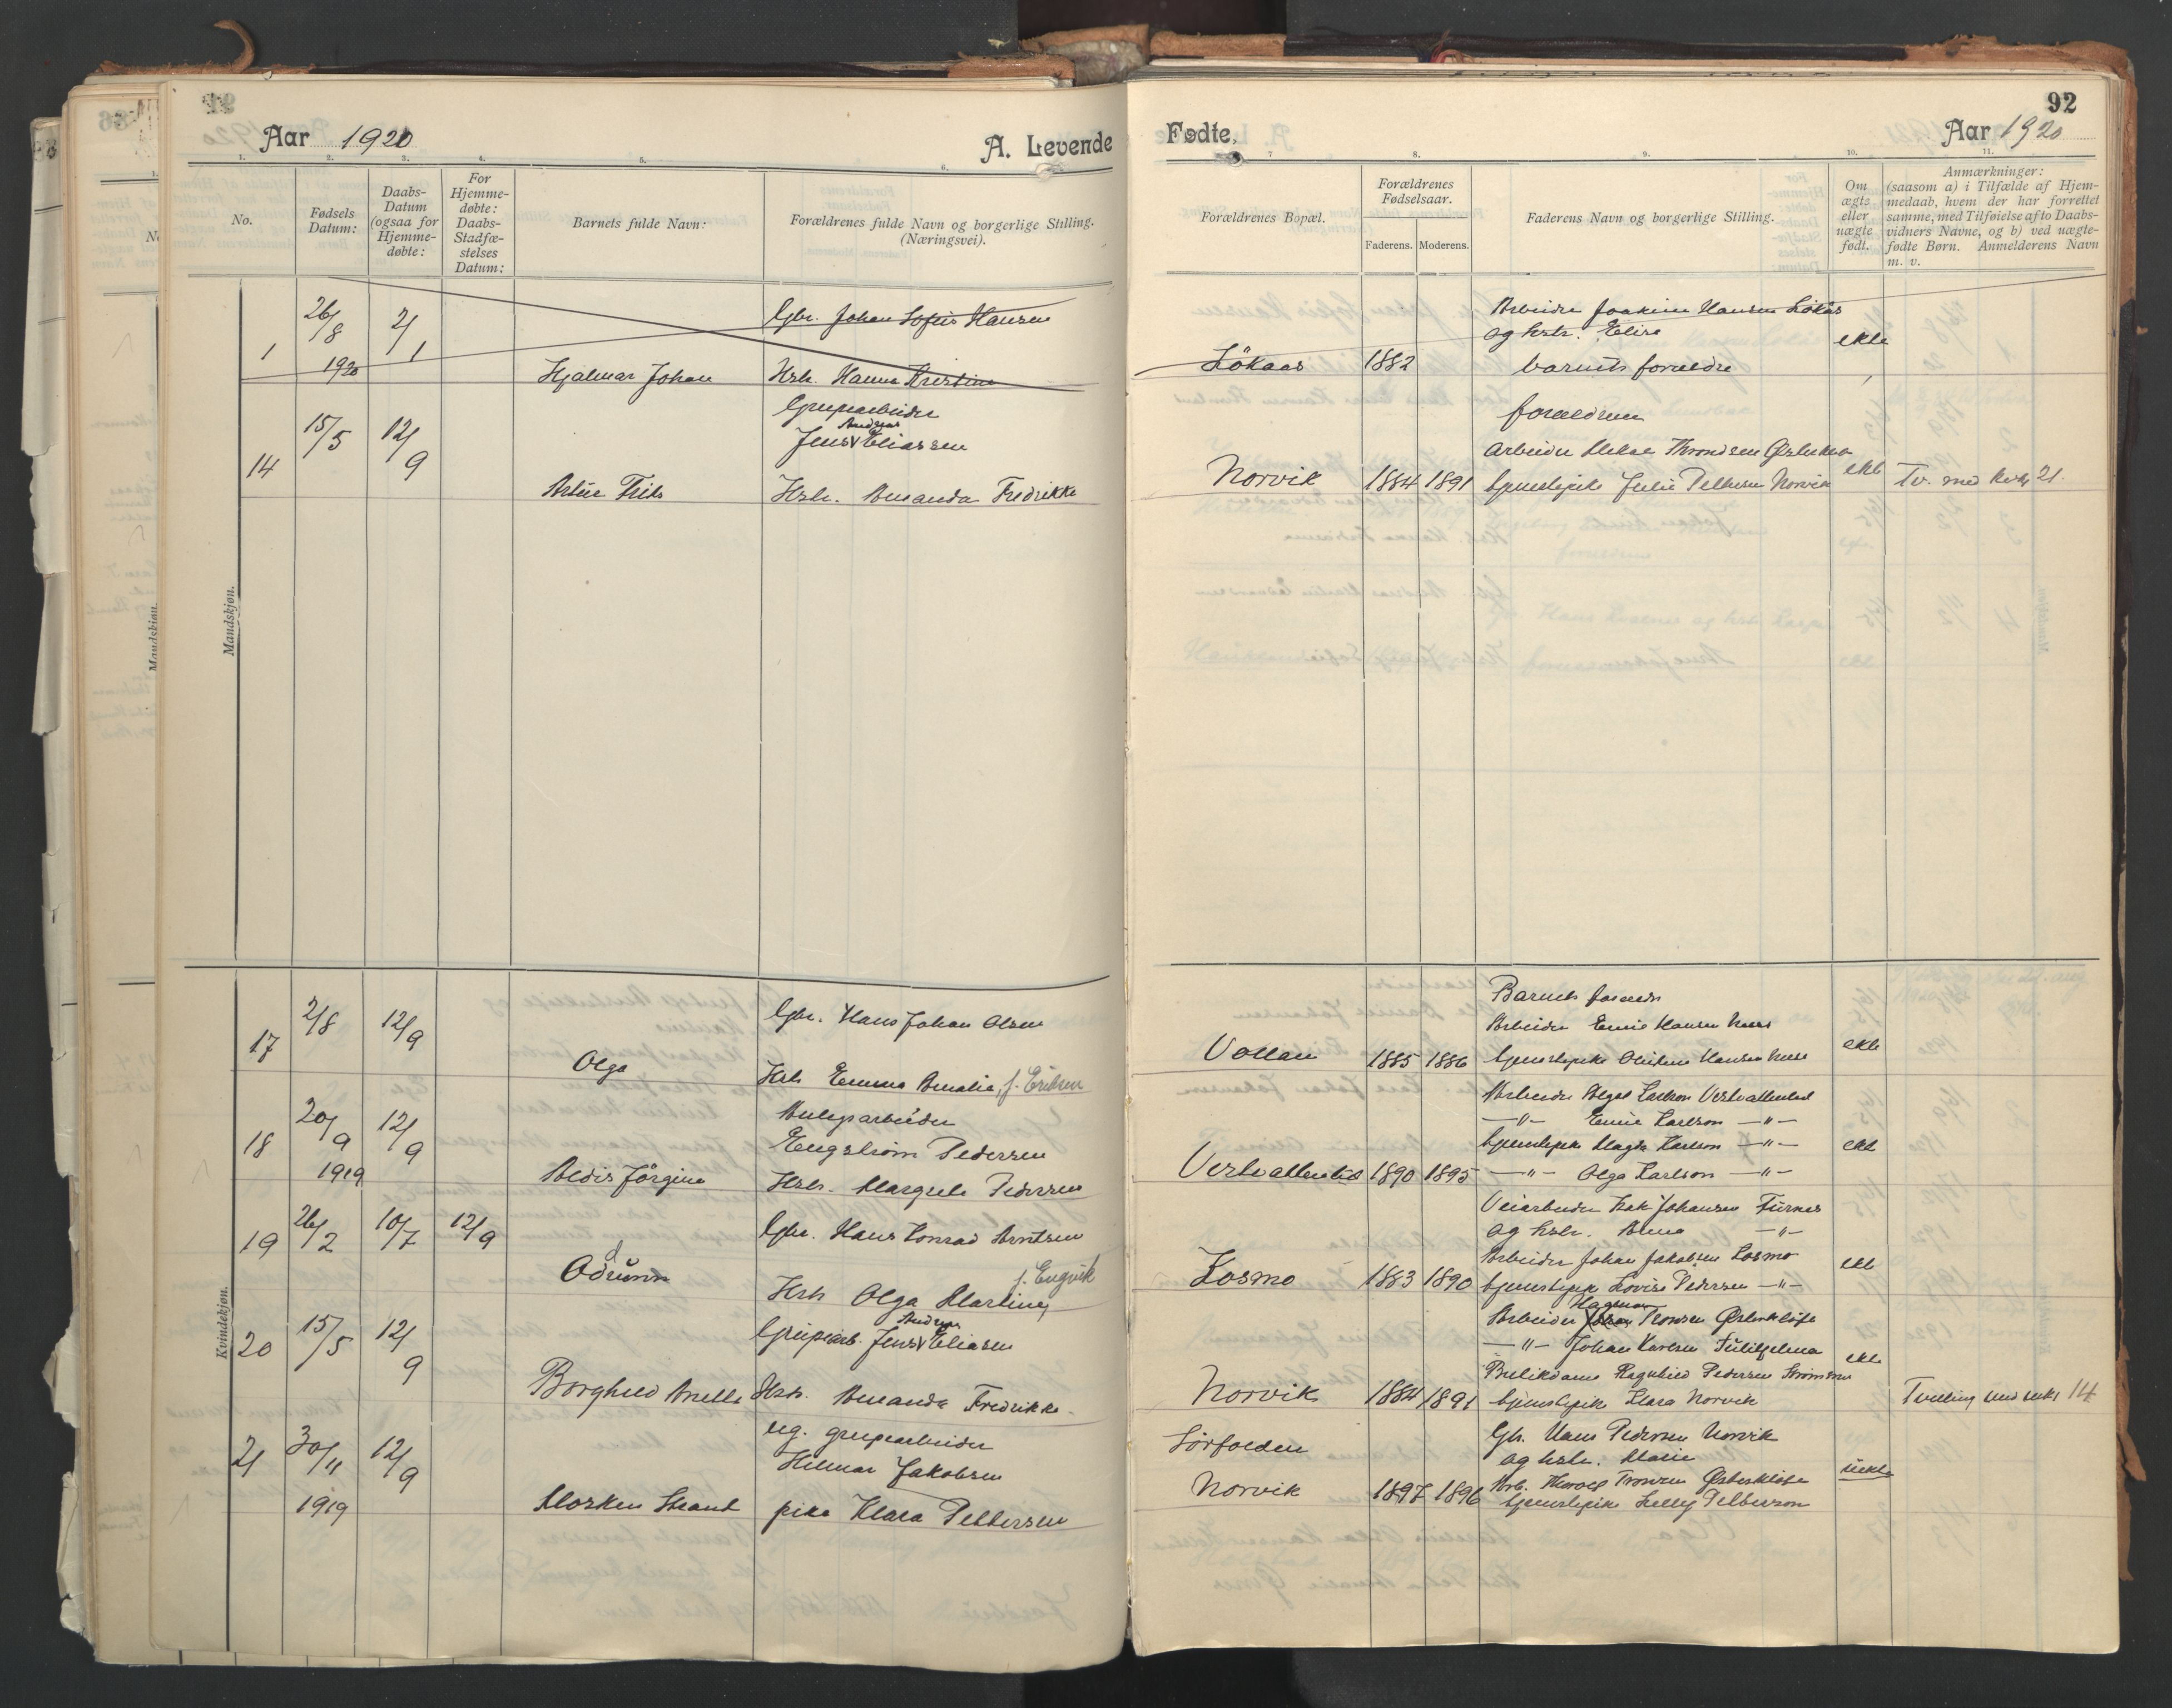 Aar 1920
A. Levende
Fødte,
92
Aar 1920
1. 2. 3. 4. 5. 6. 7 8. 9. 10. 11.
No.
Fødsels
Datum:
Daabs-
Datum
(ogsaa for
Hjemme-
døbte:
For
Hjemme-
døbte:
Daabs-
Stadfæ-
stelses
Datum:
Barnets fulde Navn:
Forældrenes fulde Navn og borgerlige Stilling.
(Næringsvei).
Forældrenes Bopæl.
Forældrenes
Fødselsaar.
Faderens. Moderens.
Faderens Navn og borgerlige Stilling.
Om
ægte
eller
uægte
født.
Anmærkninger:
(saasom a) i Tilfælde af Hjem-
medaab, hvem der har forrettet
samme, med Tilføielse af to Daabs-
vidners Navne, og b) ved uægte-
fødte Børn. Anmelderens Navn
m. v.
Mandskjøn.
1
26/8
1920
2/1
Hjalmar Johan
Gbr. Johan Sofus Hansen
Hstr. Hanna Kristine
Lökaas
1882
Arbeider Joakim Hansen Lökås
og hstr. Elise
barnets forældre
ekte
14
15/5
12/9
Artur Frits
Grubearbeider
Andreas
Jens Eliassen
Hstr. Amanda Fredrikke
Norvik
1884 1891
forældrene
Arbeider
Tjenestepike Julie Pettersen Norvik
ekte
Tv. med kvk 21.
Kvindekjøn.
17
2/8
12/9
Olga
Gbr. Hans Johan Olsen
Hstr Emma Amalia, f. Eriksen
Vollan
1885 1886
Barnets forældre
Arbeider Emil Hansen
Tjenestepike Hansen
ekte
18
20/9
1919
12/9
Aedis Jörgine
Anlegsarbeider
Engström Pedersen
Hstr. Margrete Pedersen
1890 1895
Arbeider Karlson
—"— Emil Karlson —"—
Tjenestepike Magda Karlson —"—
—"— Olga Karlson —"—
ekte
19
26/2
10/7
12/9
Odrunn
Gbr. Hans Konrad Arntsen
f. Engvik
Hstr Olga Martine
Kosmo
1883 1890
Veiarbeider Isak Johansen Furnes
og hstr. Alma —"—
Arbeider Johan Jakobsen Kosmo
Tjenestepike Lovise Pedersen —"—
ekte
20
15/5
12/9
Borghild Anette
Andreas
Grubearb. Jens Eliasen
Hstr. Amanda Fredrikke
Norvik
1884 1891
Hagman
Arbeider Tronsen Østerkløft
—"— Johan Karlsen
Butikdame Ragnhild Pedersen
Tjenestepike Klara Norvik
ekte
Tvilling med mk 14
21
30/11
1919
12/9
ug. grubearbeider
Hilmar Jakobsen
pike Klara Pettersen
Sörfolden
Norvik
1897 1896
Gb. Hans Pedersen Norvik
og hstr. Marie
Arb. Harald Tronsen Østerkløft
Tjenestepike Selly Pettersen
uekte